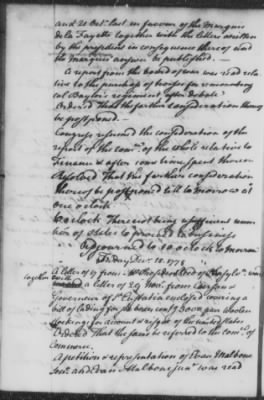 and 21 Octr. last in favour of the Marquis
de la Fayette together with the letters written
by the president in consequence thereof and
the Marquis answer be published.—
A report from the board of war was read rela
tive to the purchase of horses for remounting
col Baylor's regiment after debate
Ordered That the farther consideration thereof
be postponed.—
Congress resumed the consideration of the
report of the comee. of the whole relative to
finance & after some time spent thereon
Resolved That the farther consideration
thereof be postponed till to morrow at
one o'clock
o'clock There not being a sufficient num
ber of states to proceed to business
Adjourned to 10 o'clock to morrow
Friday Decr. 18. 1778
A letter of 17 from
a letter of 29 Novr. from
Governour of St Eustatia enclosed covering a
bill of lading for six boxes contg 3000 yan woolen
stockings for account & resque of the united states
Ordered That the same be referred to the comee. of
Commerce.
A petition & representation of Evan Malbone
Senr. and Evan Malbone junr. was read